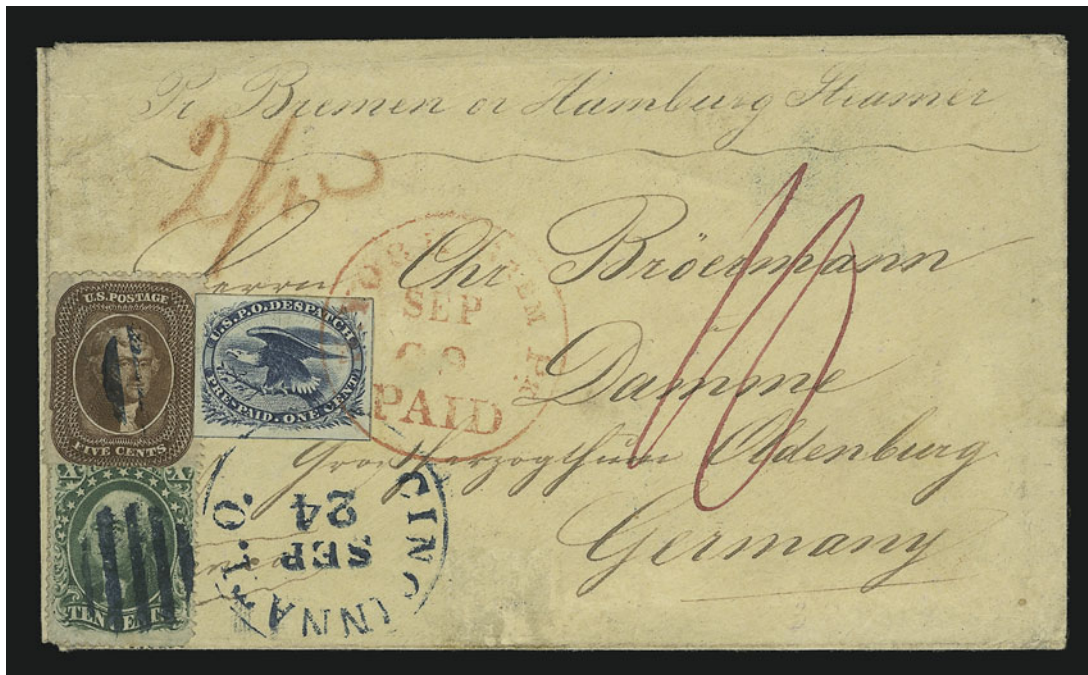 Pr Bremen or Hamburg Steamer
Herrn Chr Bröermann
Damme
Großherzogthum Oldenburg
Germany
10
U.S. POSTAGE
FIVE CENTS
U.S.P.O. DESPATCH
PRE-PAID. ONE CENT
TEN CENTS
SEP
PAID
CINCINNATI. O.
SEP
24